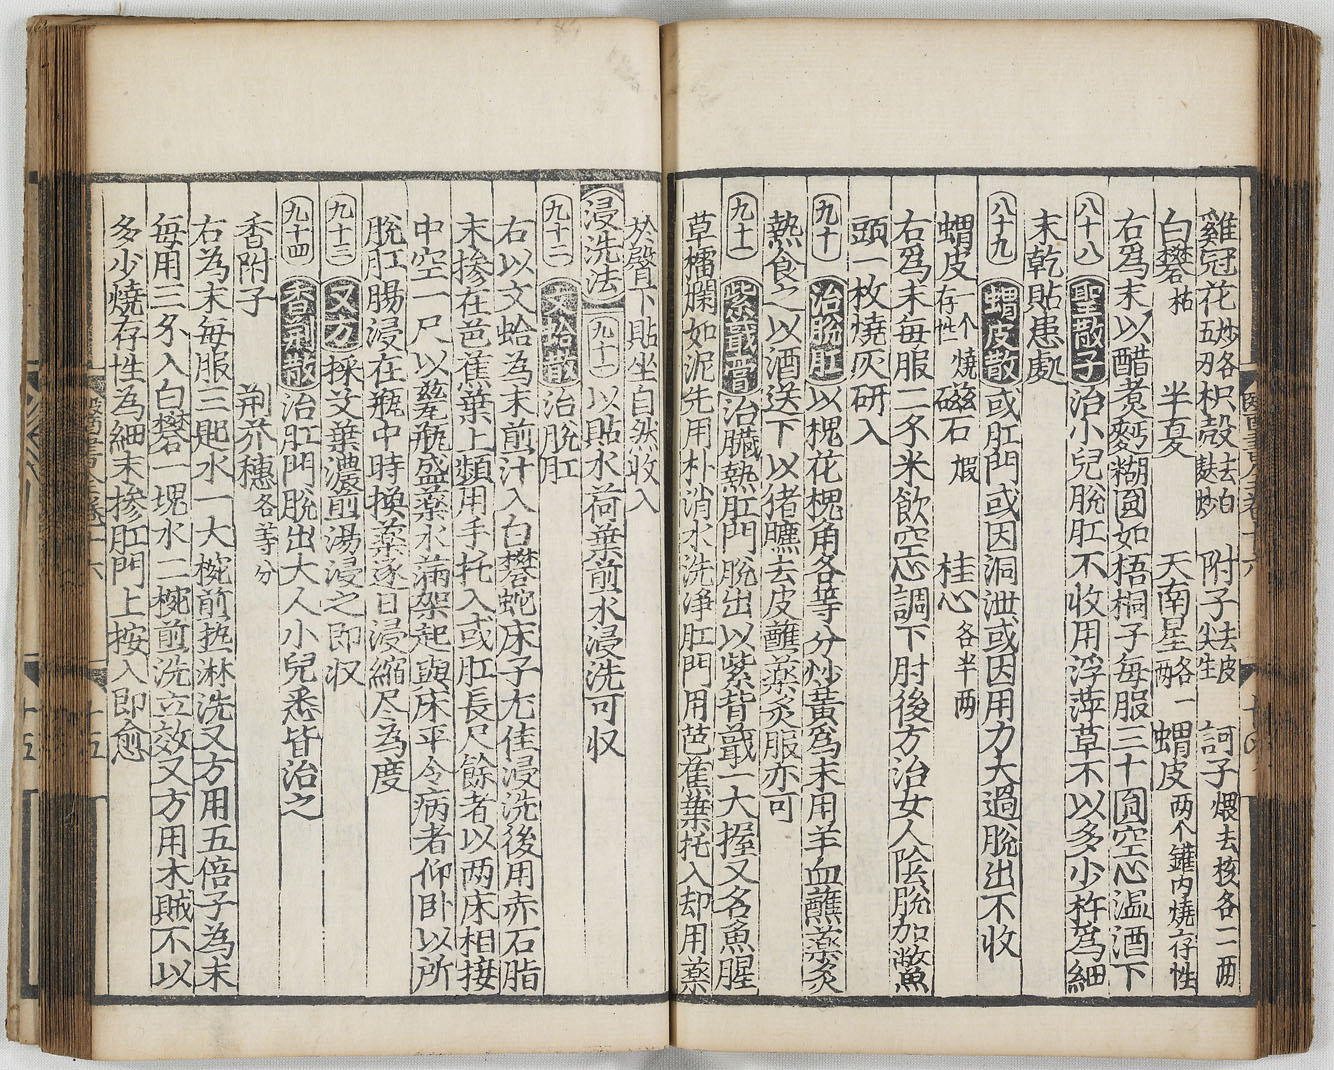 雞冠花炒各五分枳殼去白麩炒 附子去皮尖生 訶子煨去核各一兩
白礬枯 半夏 天南星各一兩 蝟皮两个鑵内燒存性
右爲末以醋煮麪糊圓如梧桐子每服三十圓空心溫酒下
八十八 聖散子治小兒脫肛不收用浮萍草不以多少杵爲細
末乾貼患處
八十九 蝟皮散或肛門或因洞泄或因用力大過脫出不收
蝟皮一个燒存性磁石煅 桂心各半两
右爲末每服二錢米飲空心調下肘後方治女人陰脫加鱉
頭一枚燒灰研入
九十 治脫肛以槐花槐角各等分炒黃爲末用羊血蘸藥炙
熱食之以酒送下以猪臕去皮蘸藥炙服亦可
九十一 紫蕺膏治臟熱肛門脫出以紫背蕺一大握又名魚腥
草擂爛如泥先用朴消水洗淨肛門用芭蕉葉托入却用藥
於臀下貼坐自然收入
浸洗法 九十一 以貼水荷葉煎水浸洗可収
九十二 文蛤散治脫肛
右以文蛤為末煎汁入白礬蛇床子尤佳浸洗後用赤石脂
末摻在芭蕉葉上頻用手托入或肛長尺餘者以两床相接
中空一尺以瓷瓶盛藥水滿架起與床平令病者仰卧以所
脫肛腸浸在瓶中時換藥逐日浸縮尺為度
九十三 又方採艾葉濃煎湯浸之即収
九十四 香荊散治肛門脫出大人小兒悉皆治之
香附子 荊芥穗各等分
右為末每服三匙水一大椀煎熱淋洗又方用五倍子為末
每用三錢入白礬一塊水二椀煎洗立效又方用木賊不以
多少燒存性為細末摻肛門上按入即愈